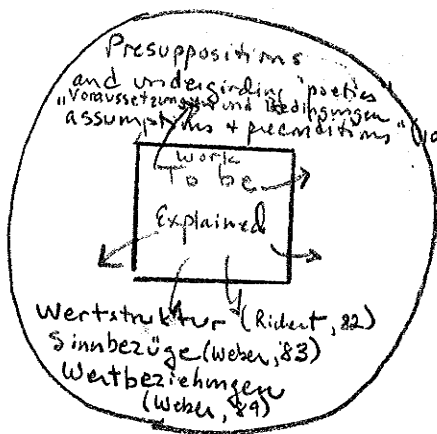 Presuppositions
and undergirding "poetics"
"Voraussetzungen und Bedingungen
assumptions + preconditions" (10
work
To be
Explained
Wertstruktur (Rickert, 82)
Sinnbezüge (Weber, 83)
Wertbeziehungen
(Weber, 89)